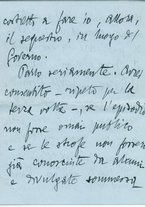 costretti a fare io, allora,
il sequestro, in luogo del
Governo.
Parlo seriamente. Avrei
consentito - ripeto per la
terza volta -, se l'episodio
non fosse omai pubblico
e se le strofe non fossero
già conosciute da alcuni
e divulgate sommessa